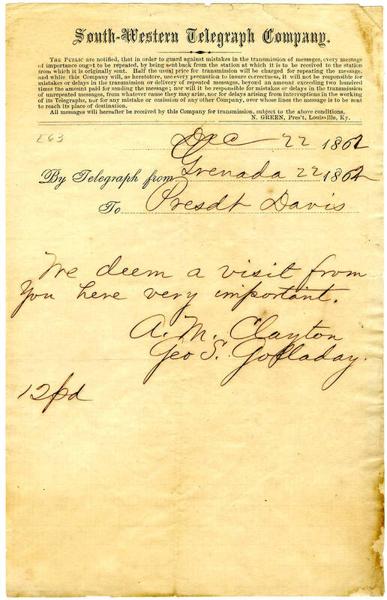 South-Western Telegraph Company.
THE PUBLIC are notified, that in order to guard against mistakes in the transmission of messages, every message
of importance ought to be repeated, by being sent back from the station at which it is to be received to the station
from which it is originally sent. Half the usual price for transmission will be charged for repeating the message,
and while this Company will, as heretofore, use every precaution to insure correctness, it will not be responsible for
mistakes or delays in the transmission or delivery of repeated messages, beyond an amount exceeding two hundred
times the amount paid for sending the message; nor will it be responsible for mistakes or delays in the transmission
of unrepeated messages, from whatever cause they may arise, nor for delays arising from interruptions in the working
of its Telegraphs, nor for any mistake or omission of any other Company, over whose lines the message is to be sent
to reach its place of destination.
All messages will hereafter be received by this Company for transmission, subject to the above conditions.
N. GREEN, Pres't, Louisville, Ky.
E63
Dec 22 1862
By Telegraph from Grenada 22 1862
To Presdt Davis
We deem a visit from
you here very important.
A. M. Clayton
Geo S. Golladay.
12 pd